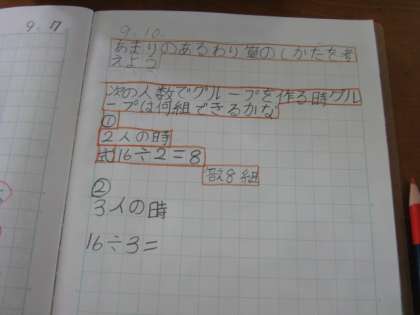 9.7
9.10.
あまりのあるわり算のしかたを考
えよう
次の人数でグループを作る時グル
ープは何組できるかな
①
2人の時
式16÷2=8
答8組
②
3人の時
16÷3=